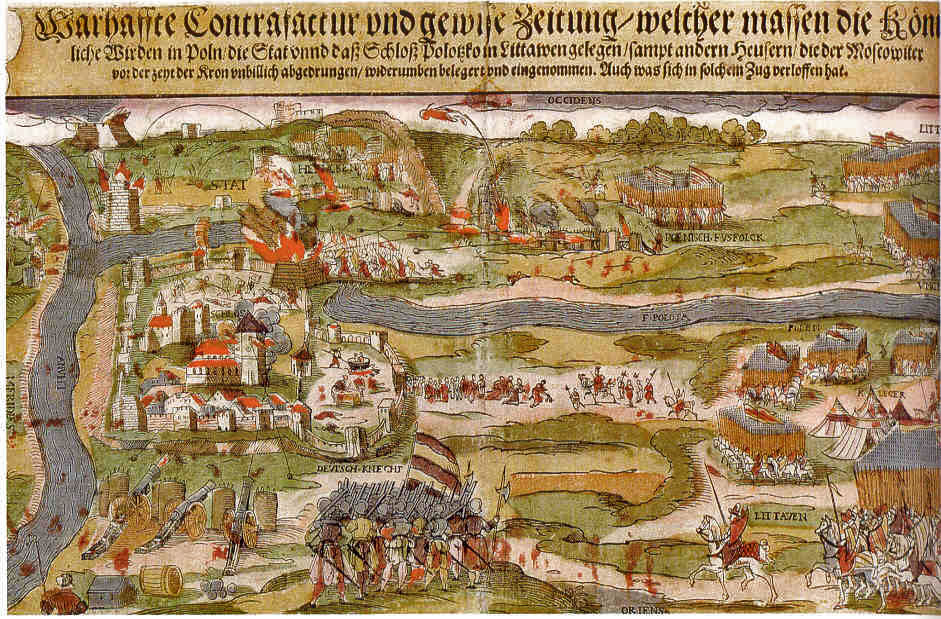 Warhaffte Contrafactur vnd gewise Zeitung/welcher massen die Kön
liche Wirden in Poln/die Stat vnnd daß Schloß Polotzko in Littawen gelegen/sampt andern Heusern/die der Moscowiter
vor der zeyt der Kron vnbillich abgedrungen/widerumben belegert vnd eingenommen. Auch was sich in solchem Zug verloffen hat.
OCCIDENS
LITT
STAT
POLNISCH·FVSFOLCK
F·POLOTA
POLEN
LEGER
DEVTSCH·KNECHT
LITTAVEN
ORIENS